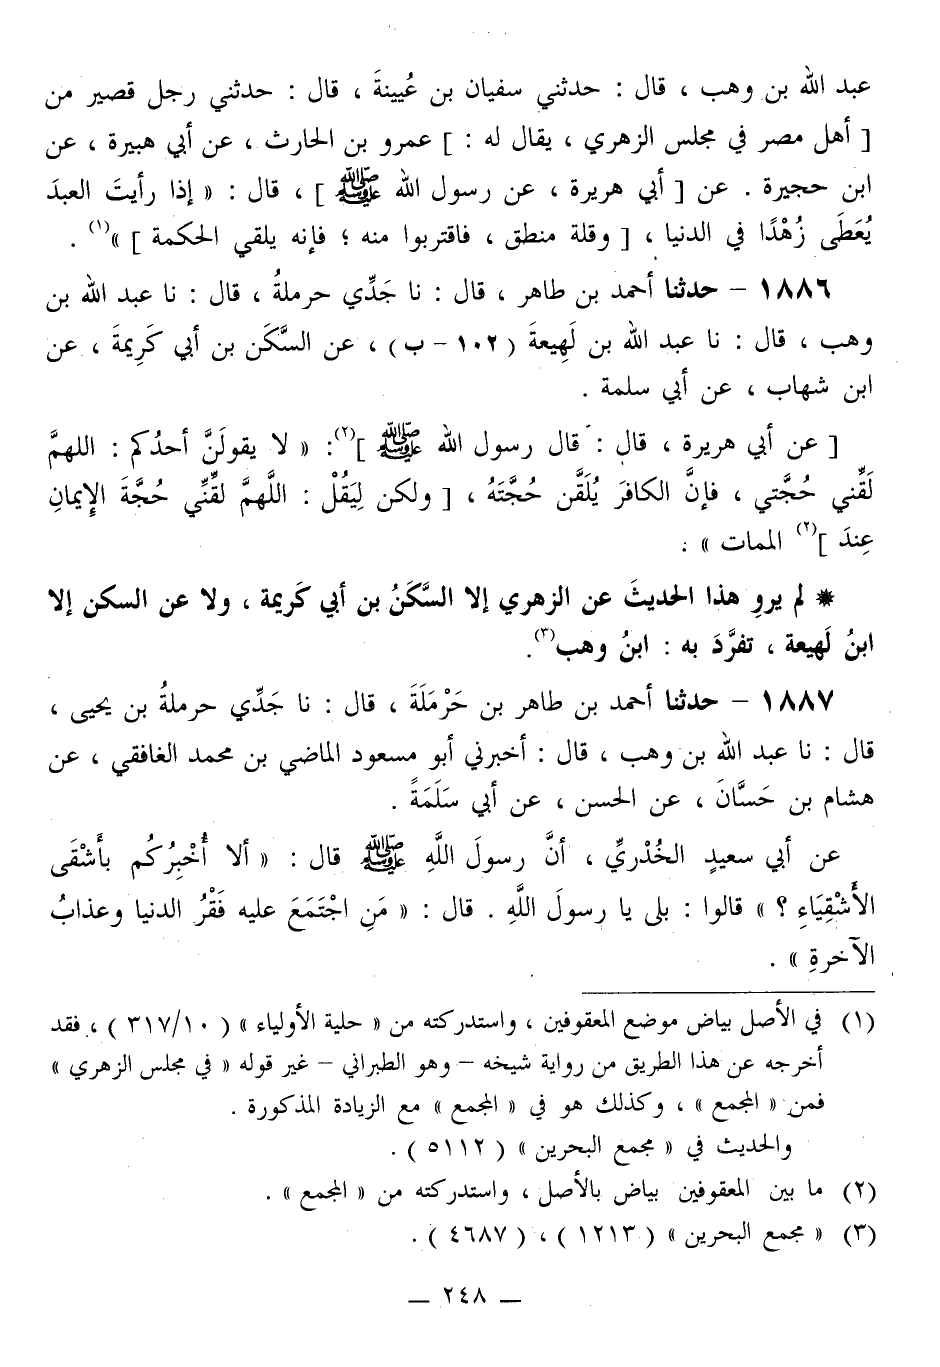 عبد الله بن وهب ، قال : حدثني سفيان بن عُيينةَ ، قال : حدثني رجل قصير من
[ أهل مصر في مجلس الزهري ، يقال له : ] عمرو بن الحارث ، عن أبي هبيرة ، عن
ابن حجيرة . عن [ أبي هريرة ، عن رسول الله ﷺ ] ، قال : « إذا رأيتَ العبدَ
يُعَطَى زُهْدًا في الدنيا ، [ وقلة منطق ، فاقتربوا منه ؛ فإنه يلقي الحكمة ] »(١) .
١٨٨٦ – حدثنا أحمد بن طاهر ، قال : نا جَدِّي حرملةُ ، قال : نا عبد الله بن
وهب ، قال : نا عبد الله بن لَهِيعةَ ( ١٠٢ - ب ) ، عن السَّكَن بن أبي كَرِيمةَ ، عن
ابن شهاب ، عن أبي سلمة .
[ عن أبي هريرة ، قال : قال رسول الله ﷺ ](٢): « لا يقولَنَّ أحدُكم : اللهمَّ
لَقِّني حُجَّتي ، فإنَّ الكافرَ يُلَقَّن حُجَّتَهُ ، [ ولكن لِيَقُلْ : اللَّهمَّ لقِّنِّي حُجَّةَ الإِيمانِ
عِندَ ](٢) الممات » .
* لم يروِ هذا الحديثَ عن الزهري إلا السَّكَنُ بن أبي كَريمة ، ولا عن السكن إلا
ابنُ لَهيعة ، تفرَّدَ به : ابنُ وهب(٣).
١٨٨٧ – حدثنا أحمد بن طاهر بن حَرْمَلَةَ ، قال : نا جَدِّي حرملةُ بن يحيى ،
قال : نا عبد الله بن وهب ، قال : أخبرني أبو مسعود الماضي بن محمد الغافقي ، عن
هشام بن حَسَّانَ ، عن الحسن ، عن أبي سَلَمَةَ .
عن أبي سعيدٍ الخُدْريِّ ، أنَّ رسولَ اللَّهِ ﷺ قال : « ألا أُخْبِرُكم بأَشْقَى
الأَشْقِيَاءِ ؟ » قالوا : بلى يا رسولَ اللَّهِ . قال : « مَنِ اجْتَمَعَ عليه فَقْرُ الدنيا وعذابُ
الآخرةِ » .
(١) في الأصل بياض موضع المعقوفين ، واستدركته من « حلية الأولياء » ( ٣١٧/١٠ ) ، فقد
أخرجه عن هذا الطريق من رواية شيخه – وهو الطبراني – غير قوله « في مجلس الزهري »
فمن « المجمع » ، وكذلك هو في « المجمع » مع الزيادة المذكورة .
والحديث في « مجمع البحرين » ( ٥١١٢ ) .
(٢) ما بين المعقوفين بياض بالأصل ، واستدركته من « المجمع » .
(٣) « مجمع البحرين » ( ١٢١٣ ) ، ( ٤٦٨٧ ) .
— ٢٤٨ —